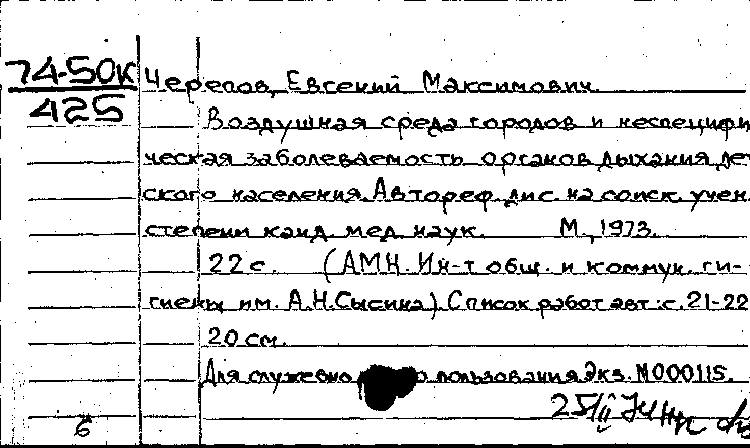 74-50К
425
Черепов, Евгений Максимович.
Воздушная среда городов и неспецифи
ческая заболеваемость органов дыхания дет
ского населения. Автореф. дис. на соиск. учен.
степени канд. мед. наук. М., 1973.
22 с. (АМН. Ин-т общ. и коммун. ги-
гиены им. А.Н.Сысина). Список работ авт.: с. 21-22
20 см.
Для служебно пользования Экз. №000115.
25/II
6